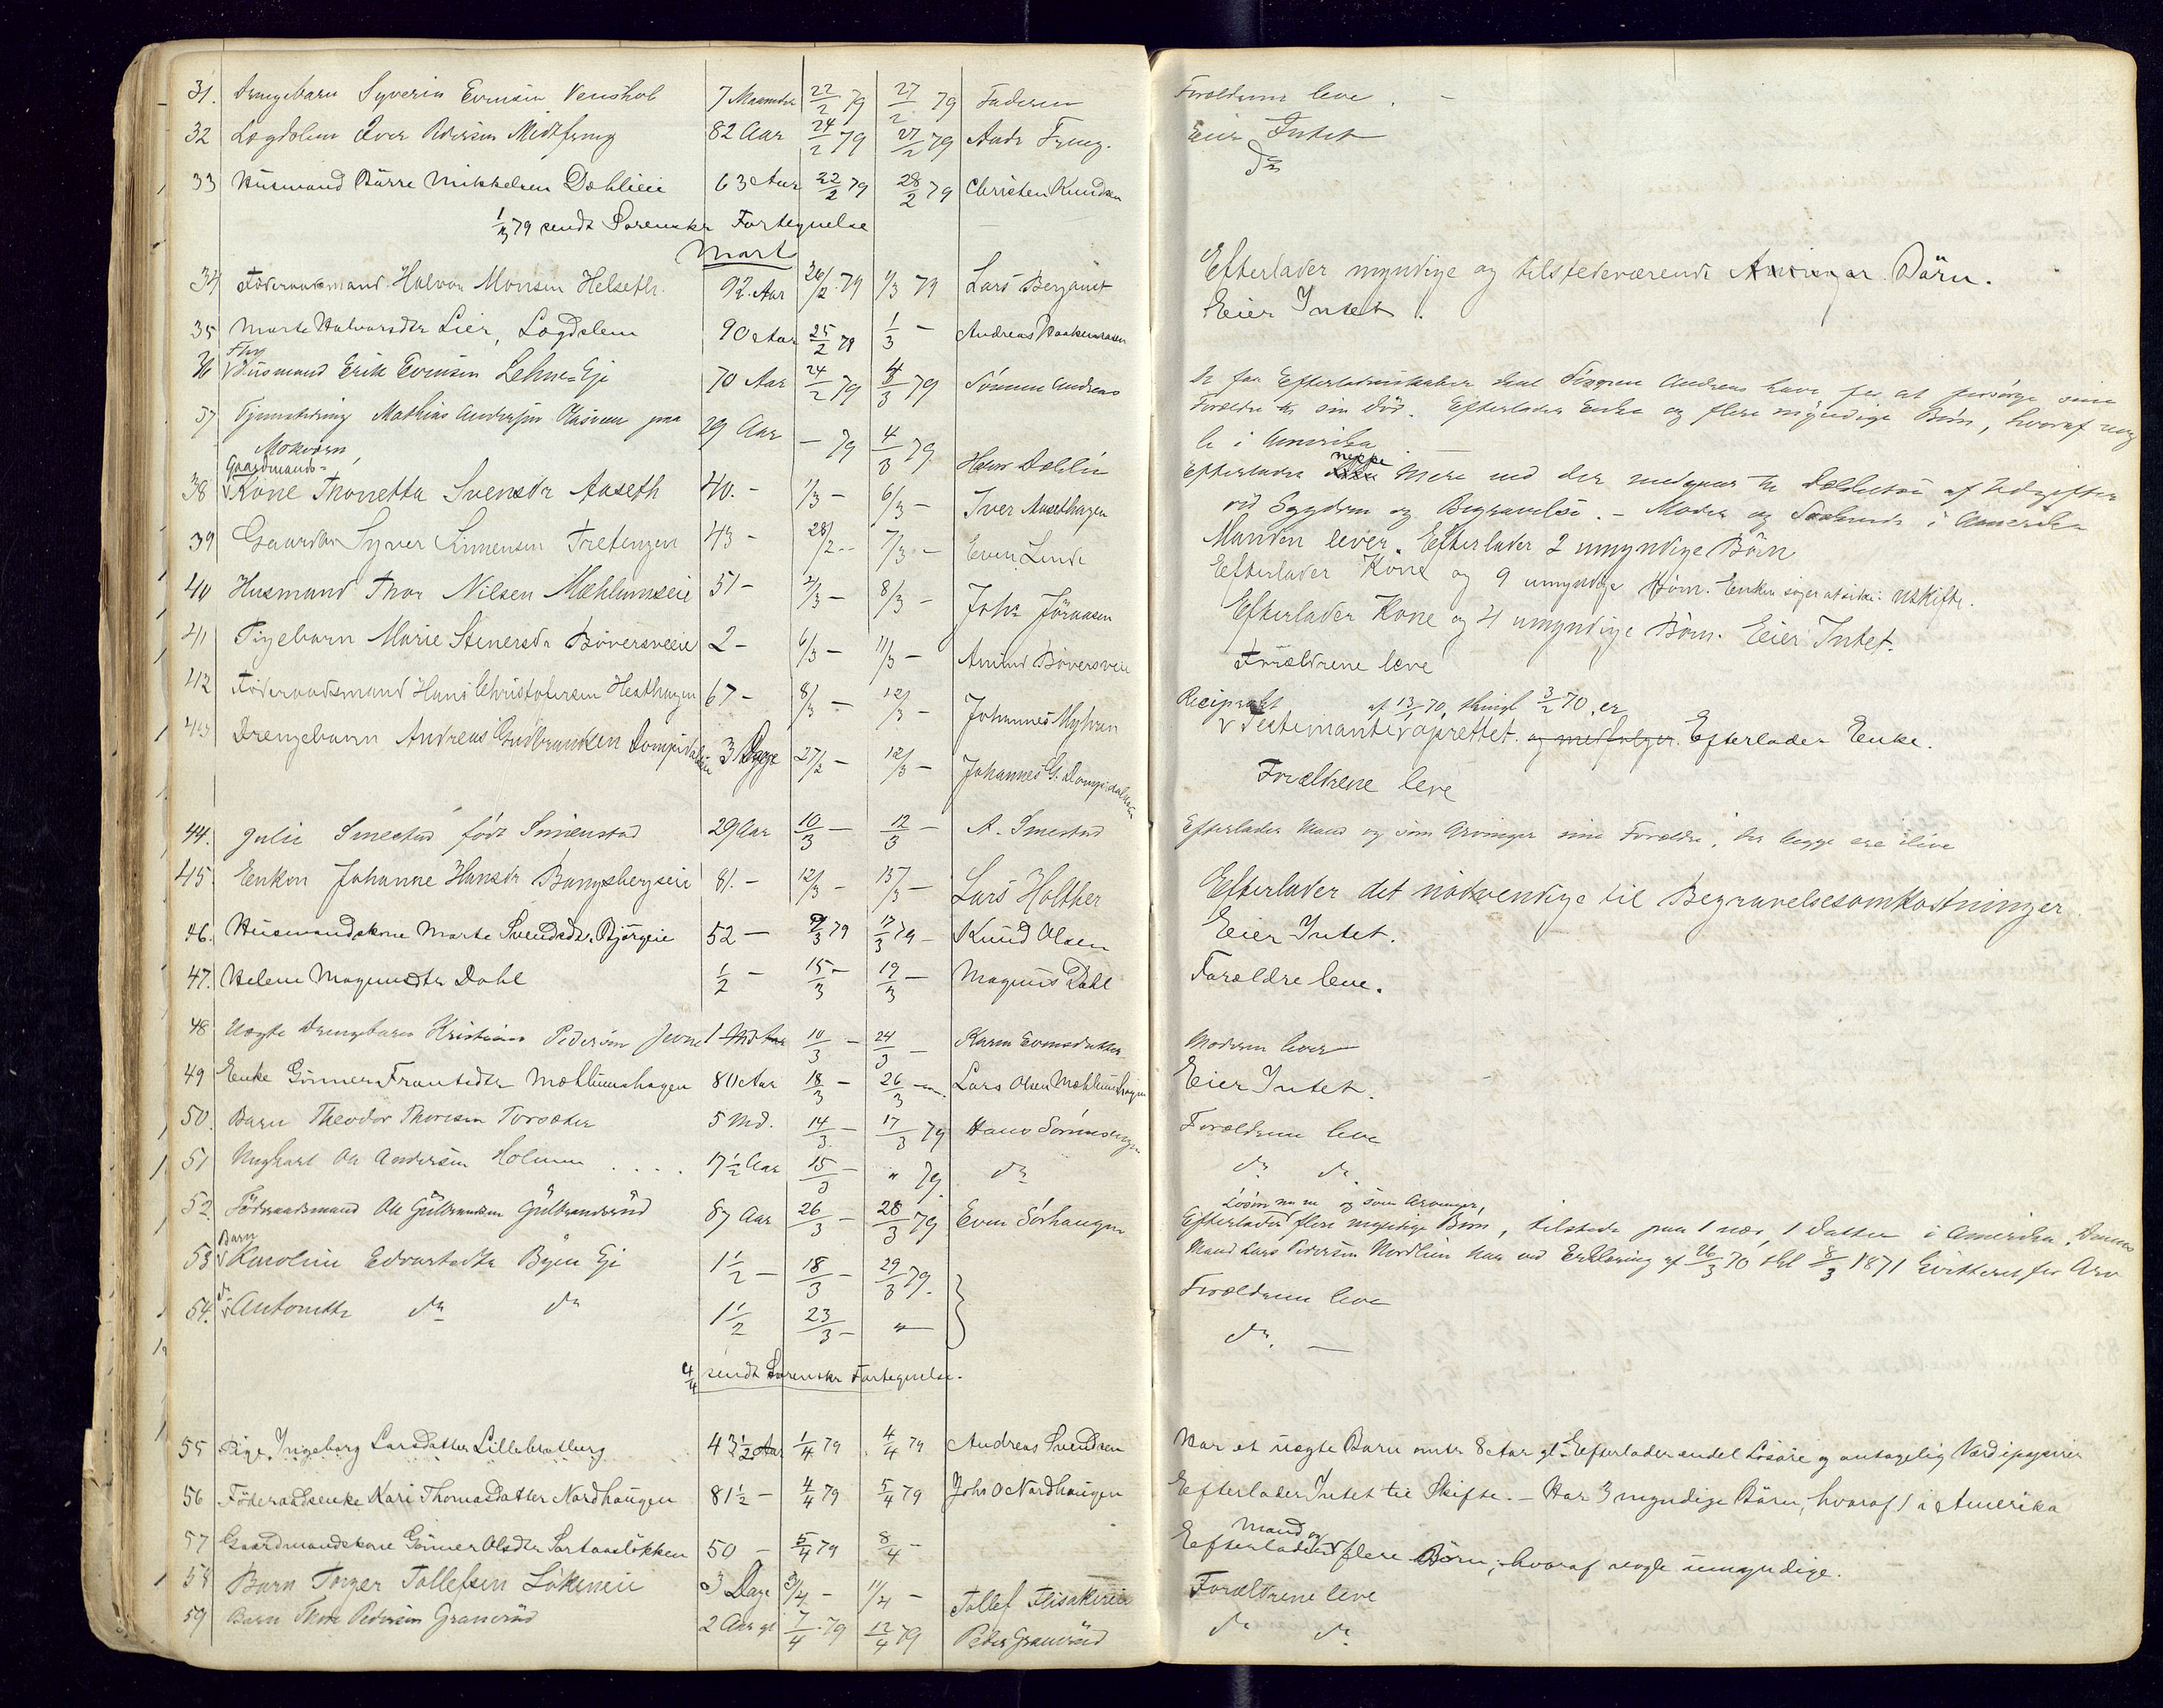 31. Drengebarn Syverin Evensen Venskob 7 Maaneder 22/2 79 27/2 79 Faderen Forældrene leve. -
32 Lægdslem Iver Pedersen Midtfeng 82 Aar 24/2 79 27/2 79 Andr Feng. Eier Intet
33 Husmand Börre Mikkelsen Dæhlieie 63 Aar 22/2 79 28/2 79 Christen Knudsen Do
1/3 79 sendt Sorenskr Fortegnelse
Mart
34 Föderaadsmand Halvor Monsen Helseth. 92. Aar 26/2 79 1/3 79 Lars Berganet Efterlader myndige og tilstedeværende Arvinger. Börn.
35 Marte Halvorsdtr Lier, Lægdslem 90 Aar 25/2 79 1/3 - Andreas Eier Intet.
36 Fhv Husmand Erik Evensen Lehne Eje 70 Aar 24/2 79 4/3 79 Sönnen Andreas De faa Efterladenskaber skal Sönnen Andreas have for at forsörge sine
Forældre til sin Död. Efterlader Enke og flere myndige Börn, hvoraf
le i Amerika
37 Mathias Andersen paa 29 Aar - 79 4/3 79 Hans Dæhlie Efterlader neppe mere end der medgaar til Dækkelse af Udgifter
ved Sygdom og Begravelse. - Moder og Södskende i Amerika
38 Gaardmands- Kone Thonetta Svensdr Aaseth 40. - 1/3 - 6/3 - Iver Aasethagen Manden lever. Efterlader 2 umyndige Börn
39 Gaardbr Syver Simensen Tretengen 43 - 28/2 - 7/3 - Even Linde Efterlader Kone og 9 umyndige Börn. Enken siger at sidde i uskifte.
40 Husmand Thor Nilsen Mæhlumseie 51 - 2/3 - 8/3 - Johs Jöransen Efterlader Kone og 4 umyndige Börn. Eier Intet.
41 Pigebarn Marie Stenersdr Böversveeie 2 - 6/3 - 11/3 - Amund Böversveeie Forældrene leve
42 Föderaadsmand Hans Christofersen Hesthagen 67 - 8/3 - 12/3 - Johannes Myhren Reciprokt Testimente af 13/1 70, thingl 3/2 70, er oprettet. og medfølger. Efterlader Enke.
43 Drengebarn Andreas Gudbrandsen Dompidalen 3 Dage 27/2 - 12/3 - Johannes G. Dompidalen Forældrene leve
44. Julie Smestad födt Simenstad 29 Aar 10/3 - 12/3 - A. Smestad Efterlader Mand og som Arvinger sine Forældre, der begge ere ilive
45. Enken Johanne Hansdr Bangsbergseie 81. - 12/3 - 15/3 - Lars Holther Efterlader det nödvendige til Begravelsesomkostninger
46. Husmandskone Marte Svendsdtr. Björgeie 52 - 9/3 79 17/3 79 - Knud Olsen Eier Intet.
47. Helene Magnusdtr Dahl 1/2 - 15/3 - 19/3 - Magnus Dahl Forældre leve.
48 Uægte Drengebarn Kristian Pedersen Jevne 1 Md 10/3 - 24/3 - Karen Evensdatter Moderen lever
49 Enke Gunner Frantsdtr Mæhlumshagen 80 Aar 18/3 - 26/3 - Lars Olsen Mæhlumshagen Eier Intet.
50. Barn Theodor Thoresen Torsæter 5 Md. 14/3 - 17/3 79 Hans Forældrene leve
51 Ungkarl Ole Andersen Holmen .... 17 1/2 Aar 15/3 - " 79. do do do.
52. Föderaadsmand Ole Gulbrandsen Gulbrandsrud 87 Aar 26/3 - 28/3 79 Even Sörhaugen Efterlader Lösöre m. m. og som Arvinger, flere myndige Börn, tilstede paa 1 nær, 1 Datter i Amerika. Dennes
Mand Lars Pedersen Nordlien har ved Erklæring af 26/3 70 thl 8/3 1871 kvitteret for Arv
53 Barn Karoline Edvartsdtr Byen Eje 1 1/2 - 18/3 - 29/3 79. Forældrene leve
54. do Antonette do do 1 1/2 23/3 - " do. -
4/4 sendt Sorenskr Fortegnelse.
55 Pige Ingeborg Larsdatter Lillebratberg 43 1/2 Aar 1/4 79 4/4 79 Andreas Svendsen Har et uægte Barn omtr 8 Aar gl. Efterlader endel Lösöre og antagelig Værdipapirer
56 Föderaadsenke Kari Thomasdatter Nordhaugen 81 1/2 - 4/4 79 5/4 79 Johs O Nordhaugen Efterlader Intet til Skifte. - Har 3 myndige Börn, hvoraf 1 i Amerika
57 Gaardmandskone Gunner Olsdtr Sortaaslökken 50 - 5/4 79 8/4 - Efterlader Mand og flere Börn, hvoraf nogle umyndige.
58 Barn Torger Tollefsen Lökeneie 3 Dage 3/4 - 11/4 - Tollef Flisakeie Forældrene leve
59 Barn Thor Pedersen Granerud 2 Aar gl 7/4 79 12/4 79 Peder Granerud do do.